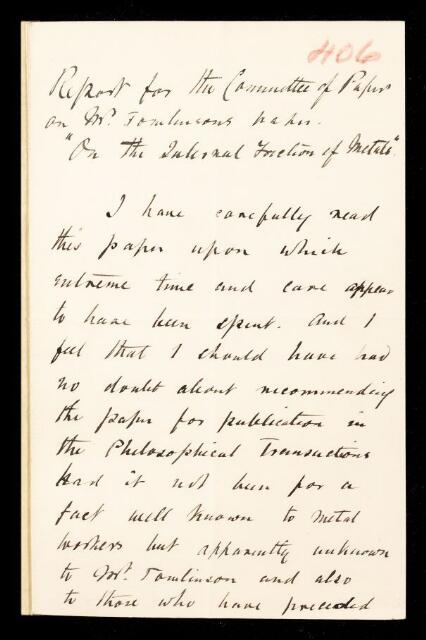 406
Report for the Committee of Papers
on Mr. Tomlinsons paper.
"On the Internal Friction of Metals".
I have carefully read
this paper upon which
extreme time and care appear
to have been spent. And I
feel that I should have had
no doubt about recommending
the paper for publication in
the Philosophical Transactions
had it not been for a
fact well known to metal
workers but apparently unknown
to Mr. Tomlinson and also
to those who have preceded